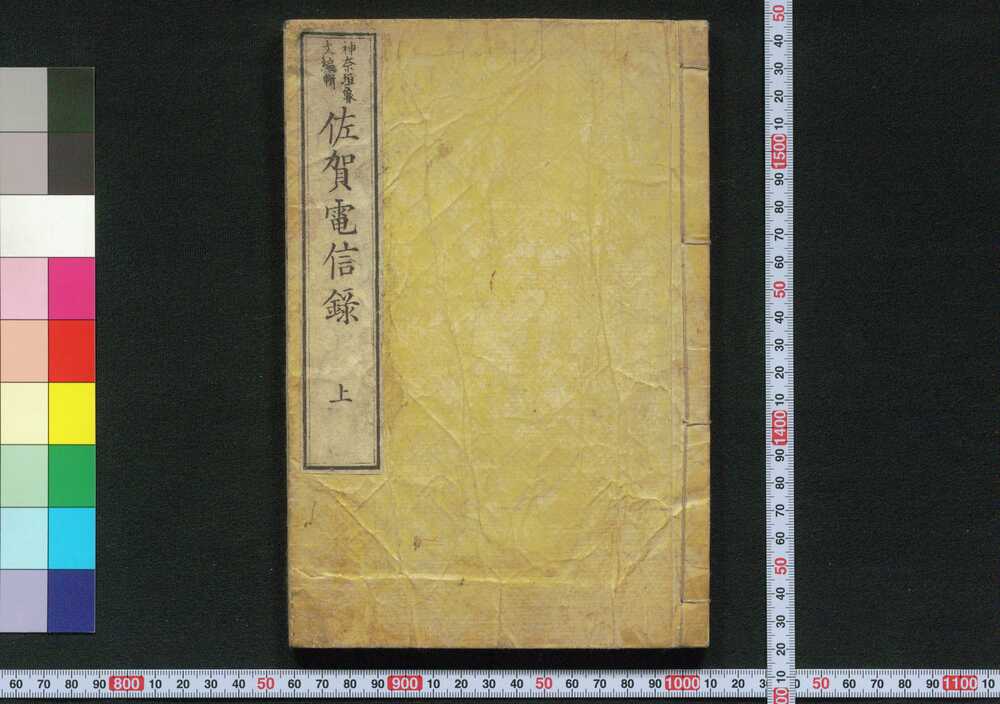 神奈垣魯
文編輯
佐賀電信錄
上
50 40 30 20 10 1500 90 80 70 60 50 40 30 20 10 1400 90 80 70 60 50 40 30 20 10
60 70 80 90 800 10 20 30 40 50 60 70 80 90 900 10 20 30 40 50 60 70 80 90 1000 10 20 50 60 70 80 90 1100 10